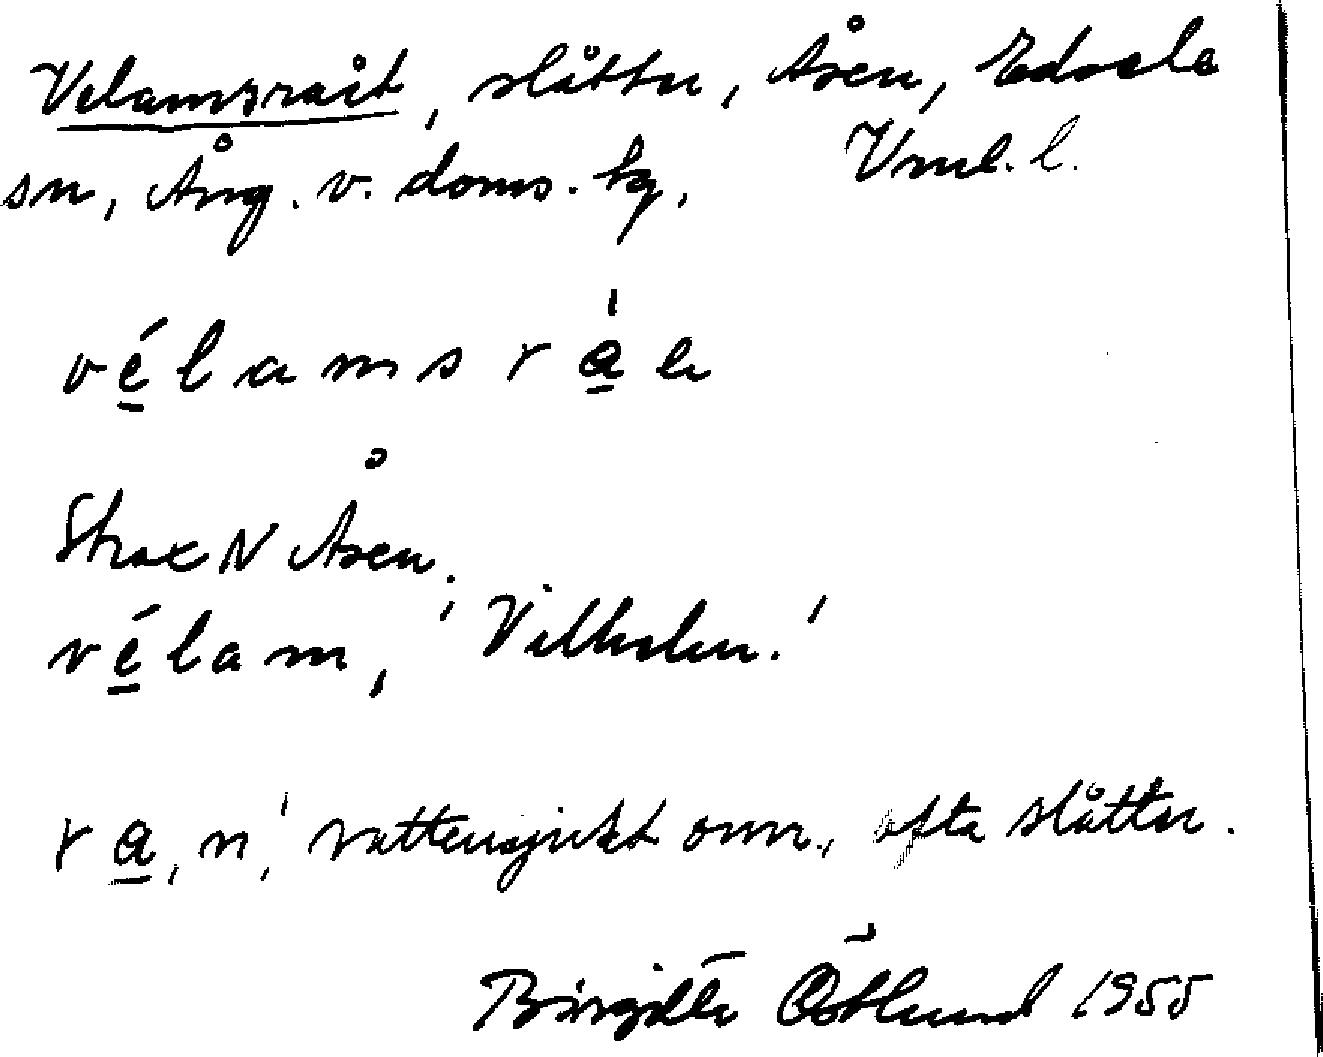 Velamsråit, slåtter, Åsen, Edsele
sn, Ång. v. doms. tg, Vnl. l.
vélamsráe
Strax N Åsen.
vélam, 'Vilhelm.'
ra, n, 'vattensjukt omr., ofta slåtter.
Birgitta Östlund 1955